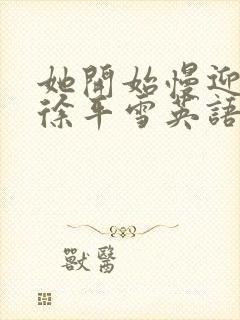 她開始慢迎
徐平雪英語
獸醫